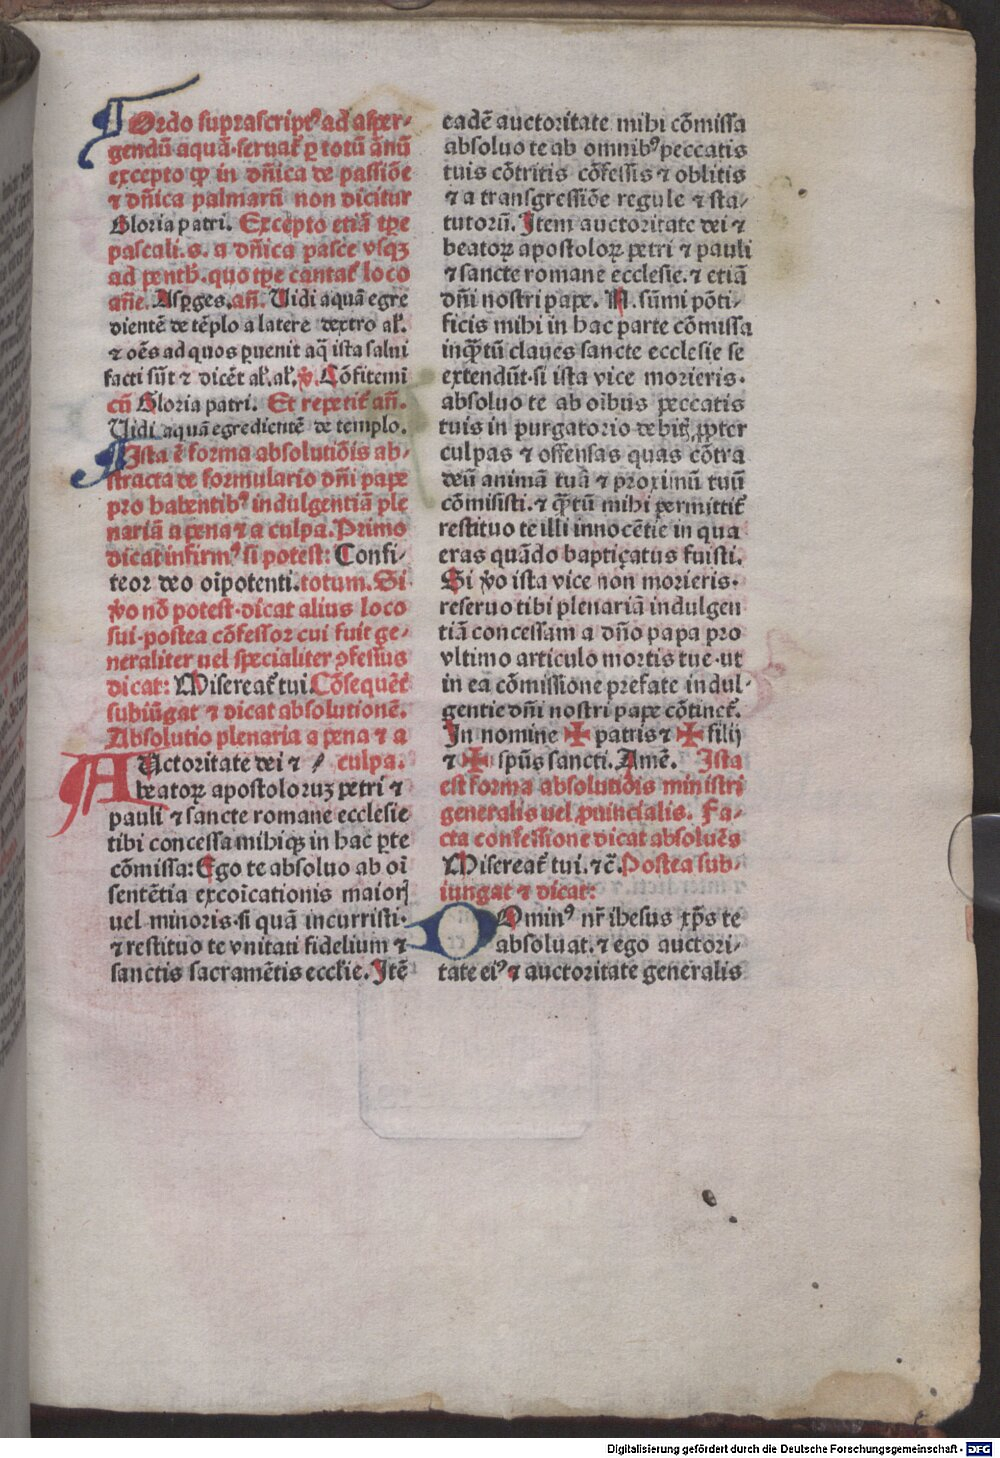 Ordo suprascript⁹ ad asper-
gendū aquā·seruat᷑ ꝑ totū ānū
excepto ꝙ in dn̄ica de passiōe
⁊ dn̄ica palmarū non dicitur
Gloria patri. Excepto etiā tp̄e
pascali.s. a dn̄ica pasce vsqꝫ
ad pentħ. quo tp̄e cantat᷑ loco
an̄e. Asꝑges. an̄. Uidi aquā egre
dientē de tēplo a latere dextro al᷑.
⁊ oēs ad quos ꝑuenit aq̄ ista salui
facti sūt ⁊ dicēt al᷑.al᷑. ℣. Cōfitemi
cū Gloria patri. Et repetit᷑ an̄.
Uidi aquā egredientē de templo.
Ista ē forma absolutiōis ab-
stracta de formulario dn̄i pape
pro habentib⁹ indulgentiā ple
nariā a pena ⁊ a culpa. Primo
dicat infirm⁹ si potest: Confi-
teor deo oīpotenti. totum. Si
ṽo nō potest·dicat alius loco
sui·postea cōfessor cui fuit ge-
neraliter uel specialiter ꝓfessus
dicat: Misereat᷑ tui. Cōsequēt᷑
subiūgat ⁊ dicat absolutionē.
Absolutio plenaria a pena ⁊ a
AUctoritate dei ⁊ / culpa.
beatoꝝ apostoloruꝫ petri ⁊
pauli ⁊ sancte romane ecclesie
tibi concessa mihiqꝫ in hac ꝑte
cōmissa: Ego te absoluo ab oī
sentētia excoīcationis maiorꝭ
uel minoris·si quā incurristi·
⁊ restituo te vnitati fidelium ⁊
sanctis sacramētis eccl̄ie. Itē
eadē auctoritate mihi cōmissa
absoluo te ab omnib⁹ peccatis
tuis cōtritis cōfessis ⁊ oblitis
⁊ a transgressiōe regule ⁊ sta-
tutorū. Item auctoritate dei ⁊
beatoꝝ apostoloꝝ petri ⁊ pauli
⁊ sancte romane ecclesie. ⁊ etiā
dn̄i nostri pape. N. sūmi pōti-
ficis mihi in hac parte cōmissa
inq̄ꝫtū claues sancte ecclesie se
extendūt·si ista vice morieris·
absoluo te ab oībus peccatis
tuis in purgatorio debitꝭ ꝓpter
culpas ⁊ offensas quas cōtra
deū animā tuā ⁊ proximū tuū
cōmisisti. ⁊ q̄ꝫtū mihi permittit᷑
restituo te illi innocētie in qua
eras quādo baptiçatus fuisti.
Si ṽo ista vice non morieris·
reseruo tibi plenariā indulgen
tiā concessam a dn̄o papa pro
vltimo articulo mortis tue·ut
in ea cōmissione prefate indul-
gentie dn̄i nostri pape cōtinet᷑.
In nomine ✠ patris ⁊ ✠ filij
⁊ ✠ spūs sancti. Amē. Ista
est forma absolutiōis ministri
generalis uel ꝓuincialis. Fa-
cta confessione dicat absoluēs
Misereat᷑ tui. ⁊c̄. Postea sub-
iungat ⁊ dicat:
DOmin⁹ nr̄ ihesus xp̄s te
absoluat. ⁊ ego auctori-
tate ei⁹ ⁊ auctoritate generalis
Digitalisierung gefördert durch die Deutsche Forschungsgemeinschaft - DFG